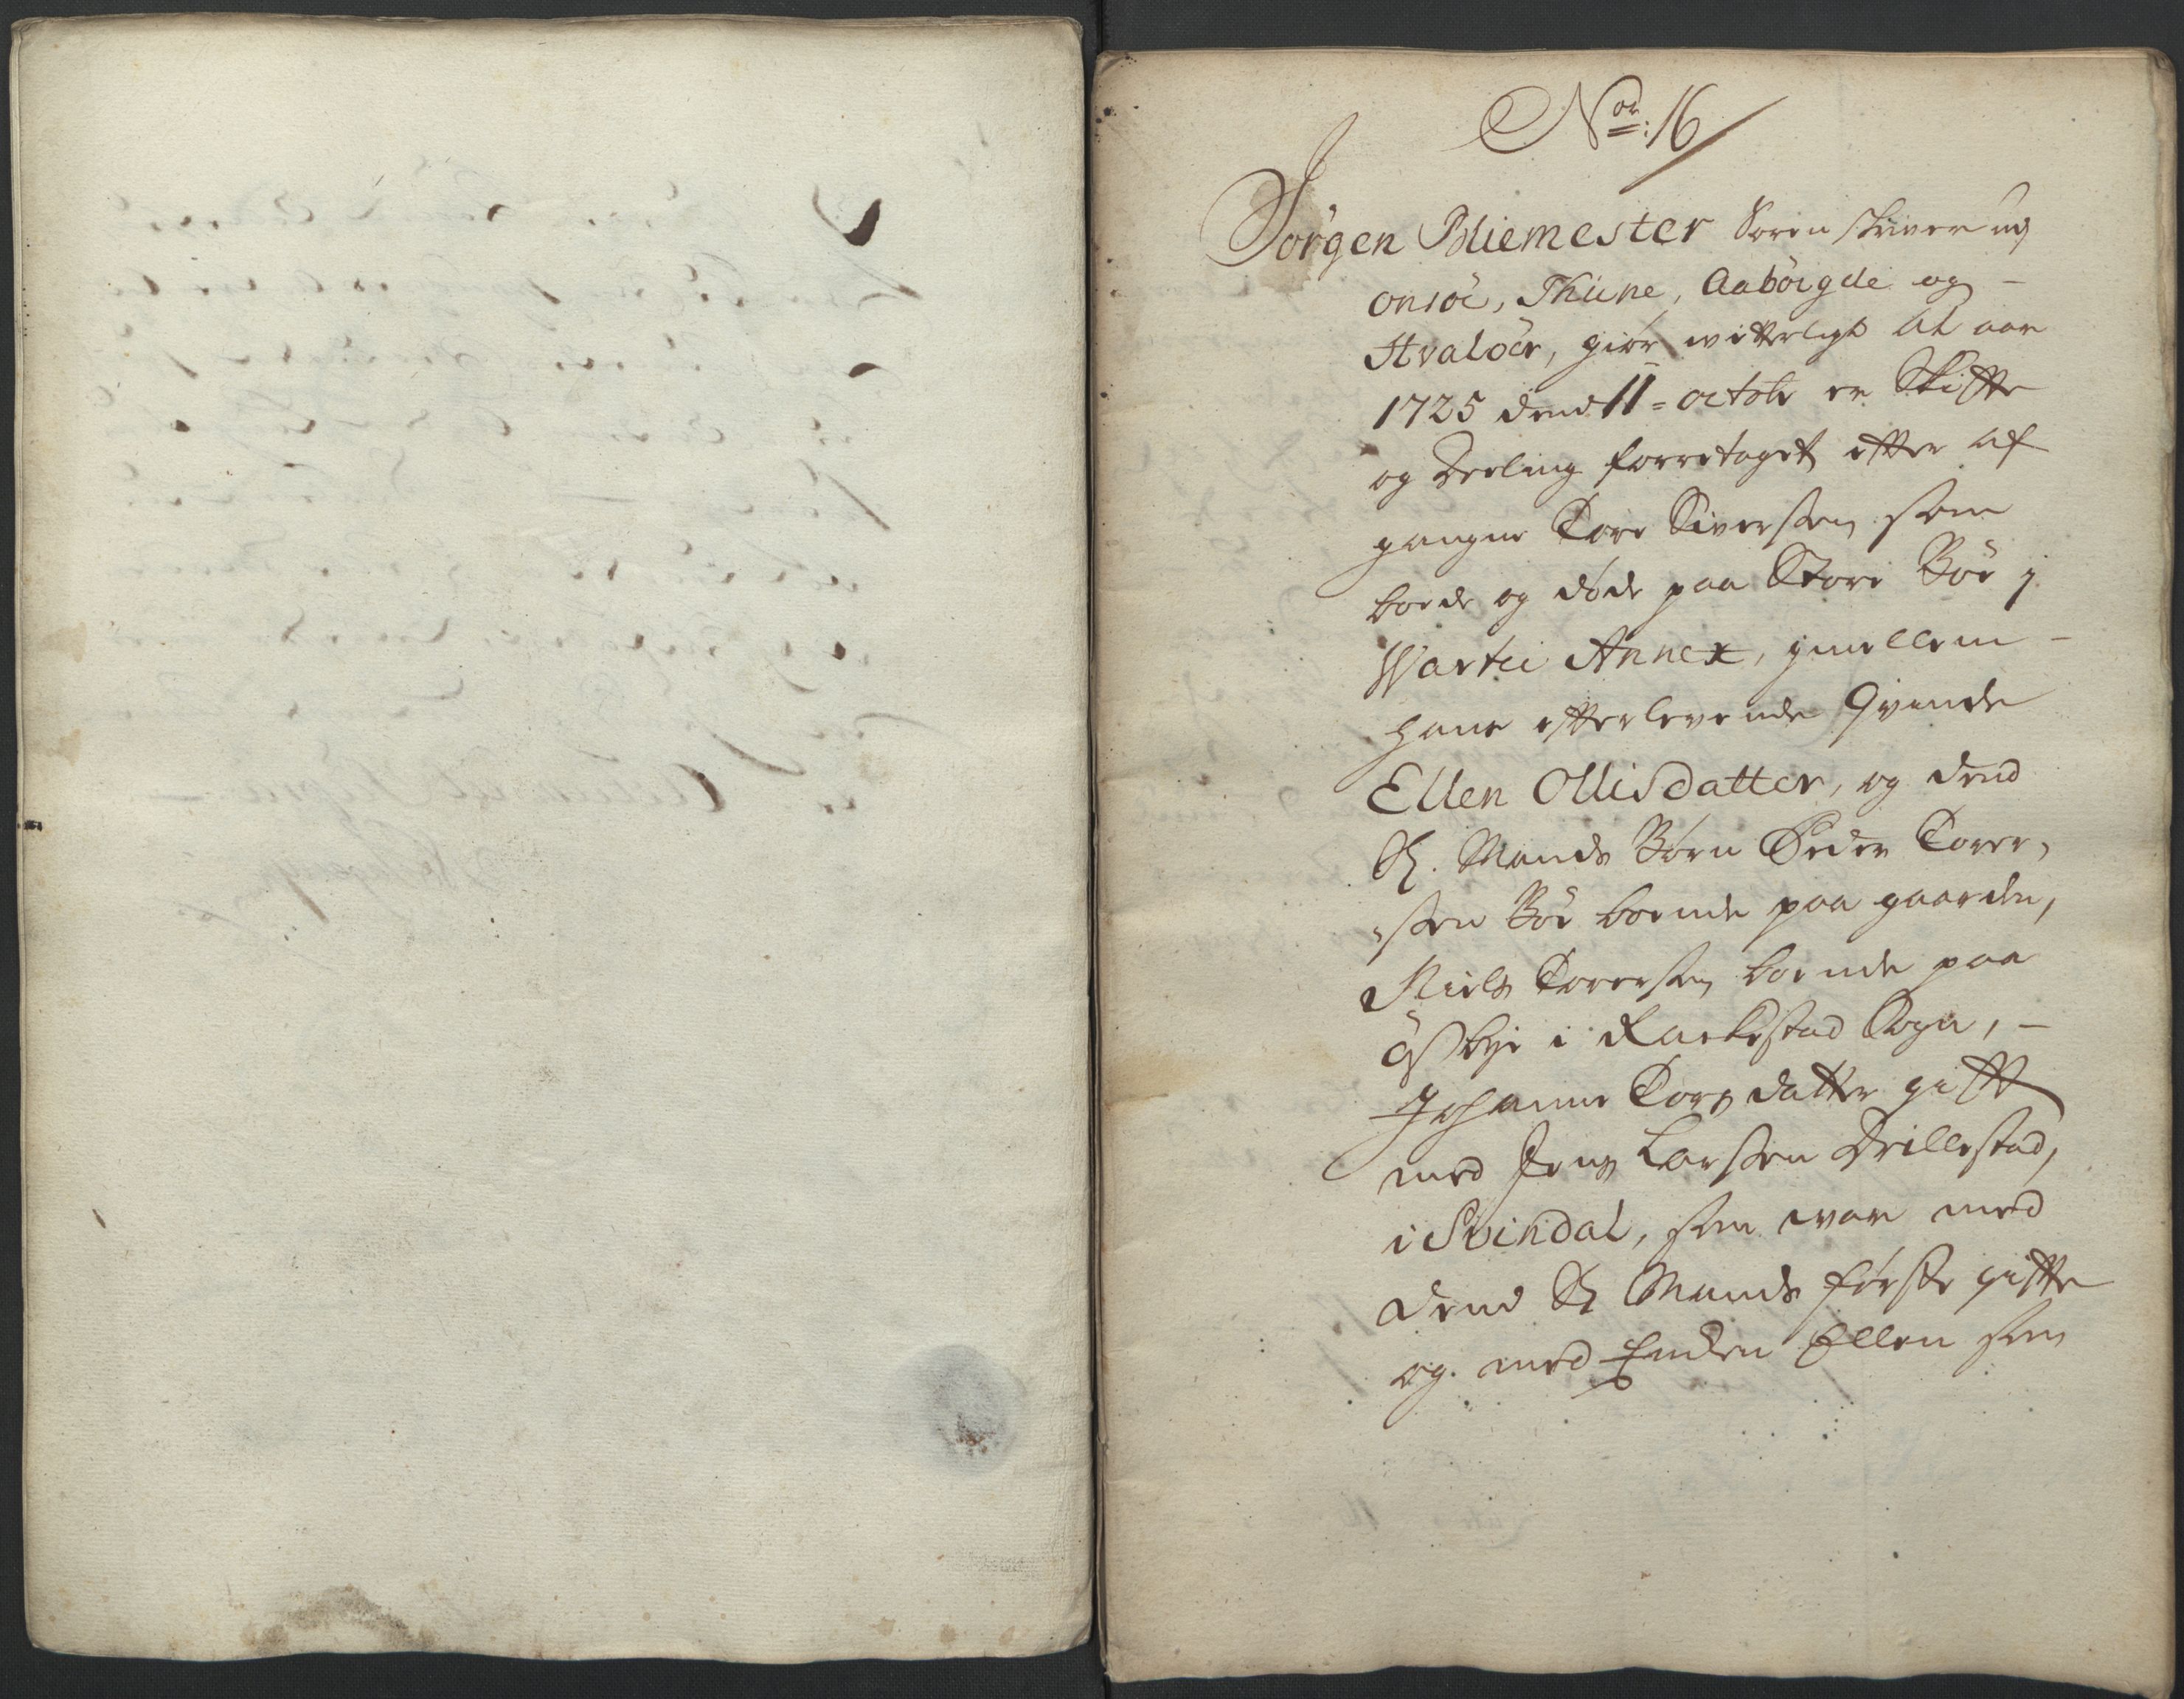 No: 16
Jörgen Bliemester Sorenskriver udj
onsöe, Thune, Aaböigde og -
Hvalöer, giör witterligt At aar
1725 dend 11= octobr er Skifte
og Deeling forretaget efter af
gangne Tore Siversen som
boede og döde paa Store Böe j
Wartei Annex, jmellem -
hans efterlevende Qvinde
Ellen Ollisdatter, og dend
Sl. Mands Börn Peder Torer,
,sen Böe boende paa gaarden,
Niels Torersen boende paa
Östbye i Rackestad Sogn, -
Johanne Torsdatter gift
med Jens Larsen Drillestad,
i Svindal, som war med
dend Sl Mands förste gifte
og med Enken Ellen som